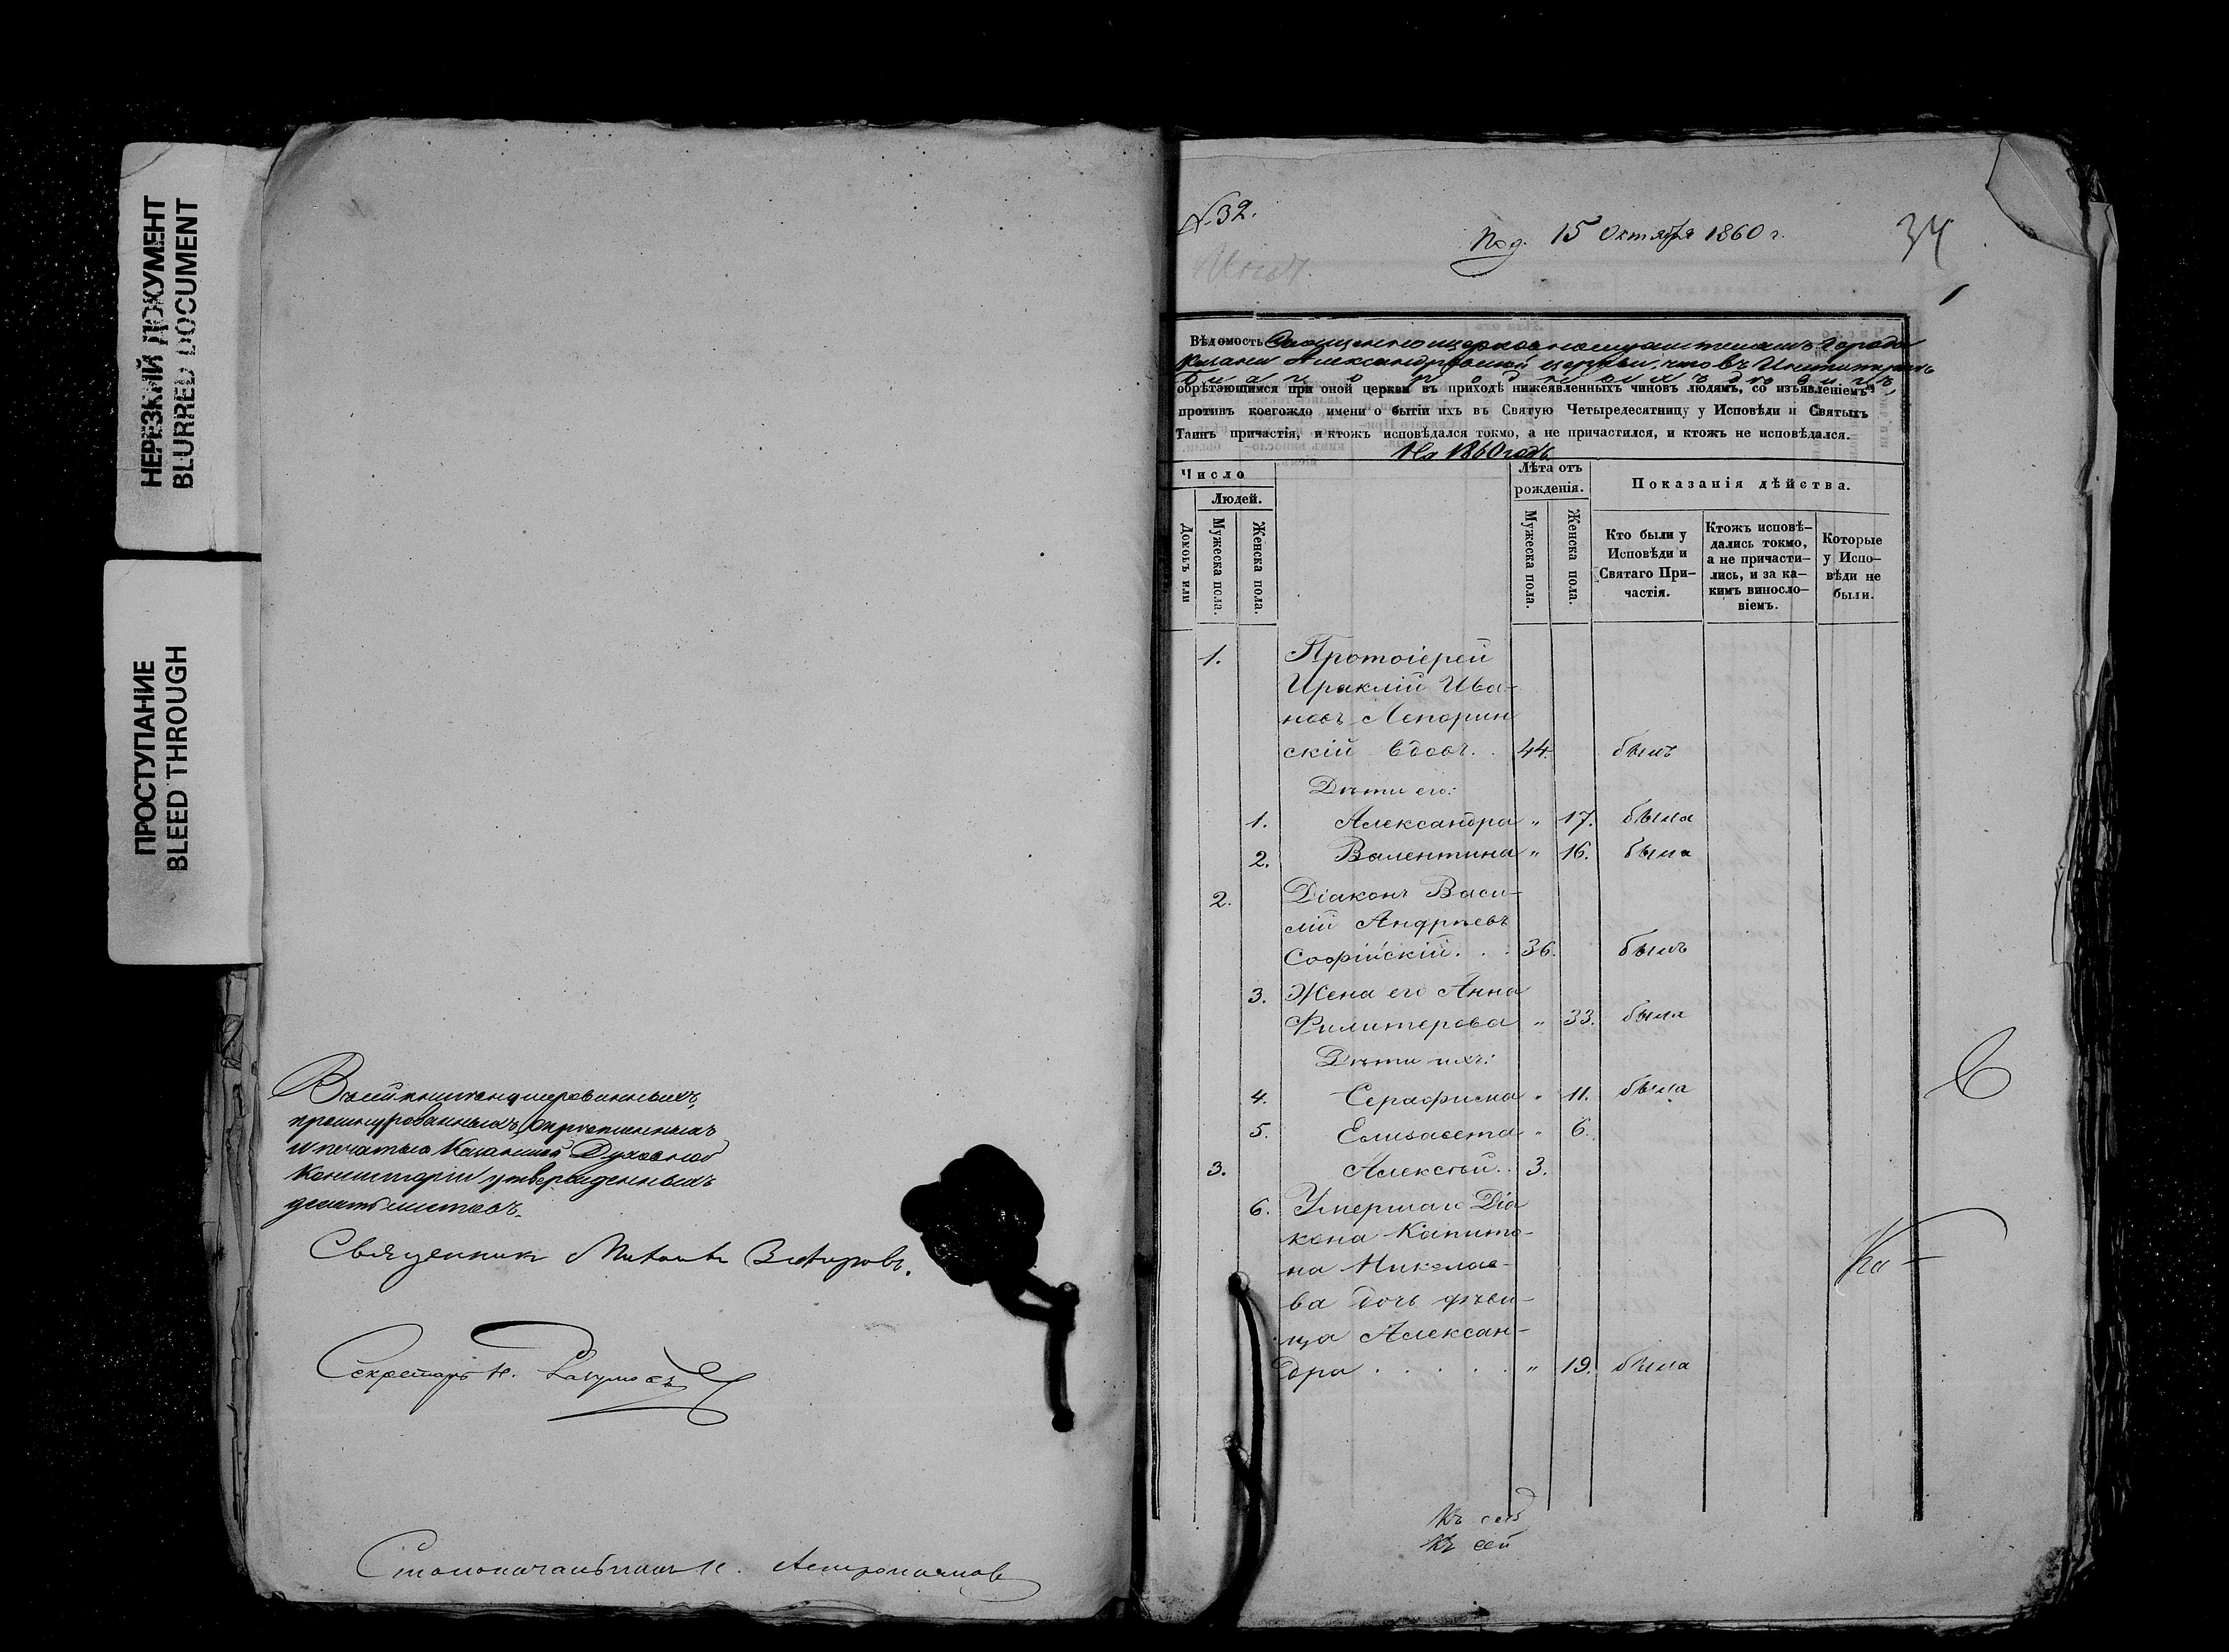 НЕРЕЗКИЙ ДОКУМЕНТ
BLURRED DOCUMENT
ПРОСТУПАНИЕ
BLEED THROUGH
и печатью Казанской Духовной
Консисторіи утвержденныхъ
десять листовъ.
Священникъ
Секретарь Н.
Столоначальникъ
№ 32.
Под. 15 Октября 1860 г.
34
1
Вѣдомость Священноцерковнослужителямъ города
Казани Александровской церкви, что въ Институтѣ
Благородныхъ дѣвицъ,
обрѣтающимся при оной церкви въ приходѣ нижеявленныхъ чиновъ людямъ, со изъявленіемъ
противъ коегождо имени о бытіи ихъ въ Святую Четыредесятницу у Исповѣди и Святыхъ
Таинъ причастія, и ктожъ исповѣдался токмо, а не причастился, и ктожъ не исповѣдался.
На 1860 годъ
Число
Людей.
Домовъ или
Мужеска пола.
Женска пола.
Лѣта отъ
рожденія.
Мужеска пола.
Женска пола.
Показанія дѣйства.
Кто были у
Исповѣди и
Святаго При-
частія.
Ктожъ исповѣ-
дались токмо,
а не причасти-
лись, и за ка-
кимъ винosло-
віемъ.
Которые
у Испо-
вѣди не
были.
1. Протоіерей
Ираклій Ива-
новъ Лепорин
скій вдовъ. . 44. былъ
Дѣти его:
1. Александра " 17. была
2. Валентина " 16. была
2. Діаконъ Васи-
лій Андрѣевъ
Софійскій. . . 36. былъ
3. Жена его Анна
Филитерова " 33. была
Дѣти ихъ:
4. Серафима " 11. была
5. Елизавета " 6.
3. Алексѣй. . 3.
6. Умершаго Діа
кона Капито-
на Николае-
ва дочь дѣви-
ца Алексан-
дра . . . . . " 19. была
Къ сей
Къ сей